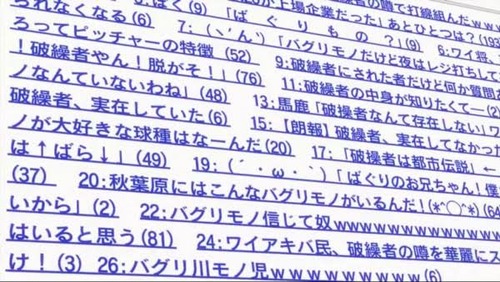 れなくなる(6) 6:ばく(9) 「ば ぐ り も の ？」(9)
ろってピッチャーの特徴 (52) 7: (ヽ´ん`) 「バグリモノだけど夜はレジ打ちして
！破繰者やん！脱がそ！」(76) 9:破繰者にされた者だけど何か質問
ノなんていないわね」(48) 11:破繰者の中身が知りたくてー(2
破繰者、実在していた(6) 13:馬鹿「破操者なんて存在しない」2
ノが大好きな球種はなーんだ(20) 15:【朗報】破繰者、実在してなかっ
は↑ばら↓」(49) 17:「破繰者は都市伝説」←
(37) 19:(´・ω・`)「ばぐりのお兄ちゃん！僕
20:秋葉原にはこんなバグリモノがいるんだ！(*^◯^*)
いから」(2) 22:バグリモノ信じて奴wwwwwwwwwwwww
はいると思う(81) 24:ワイアキバ民、破繰者の噂を華麗にス
け！(3) 26:バグリ川モノ児ｗｗｗｗｗｗｗｗｗ(6)